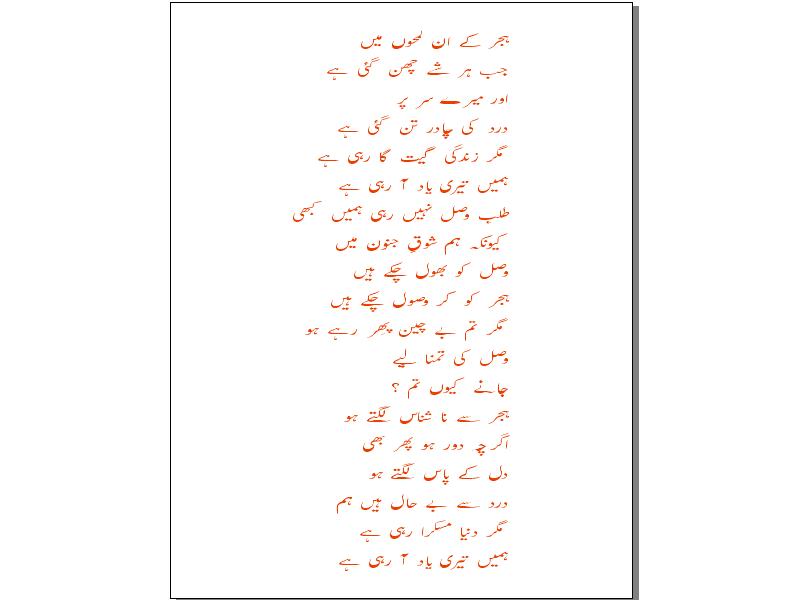 ہجر کے ان لمحوں میں
جب ہر شے چھن گئی ہے
اور میرے سر پر
درد کی چادر تن گئی ہے
مگر زندگی گیت گا رہی ہے
ہمیں تیری یاد آ رہی ہے
طلب وصل نہیں رہی ہمیں کبھی
کیونکہ ہم شوقِ جنون میں
وصل کو بھول چکے ہیں
ہجر کو کر وصول چکے ہیں
مگر تم بے چین پھر رہے ہو
وصل کی تمنا لیے
جانے کیوں تم ؟
ہجر سے نا شناس لگتے ہو
اگرچہ دور ہو پھر بھی
دل کے پاس لگتے ہو
درد سے بے حال ہیں ہم
مگر دنیا مسکرا رہی ہے
ہمیں تیری یاد آ رہی ہے